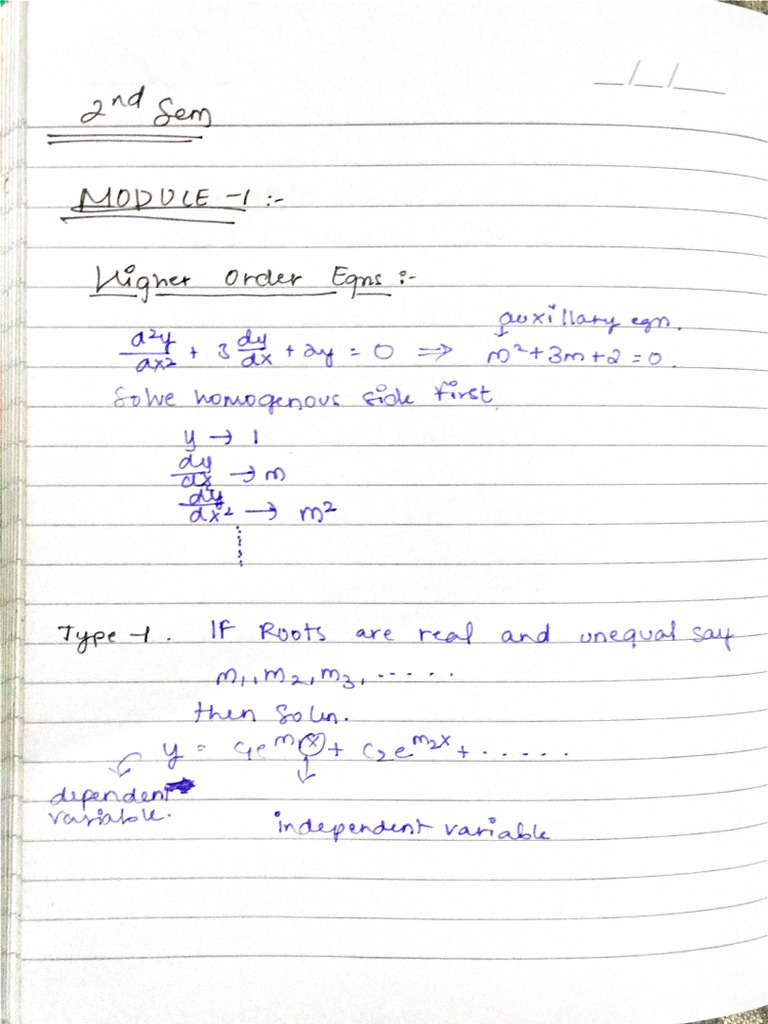 __/__/__
2nd Sem
MODULE -1 :-
Higher Order Eqns :-
auxillary eqn.
d²y/dx² + 3 dy/dx + 2y = 0 ⇒ m²+3m+2=0.
Solve homogenous side first
y → 1
dy/dx → m
dy/dx² → m²
Type -1. If Roots are real and unequal say
m₁, m₂, m₃, ......
then Soln.
y = c₁e^m₁x + c₂e^m₂x + ......
dependent
variable.
independent variable